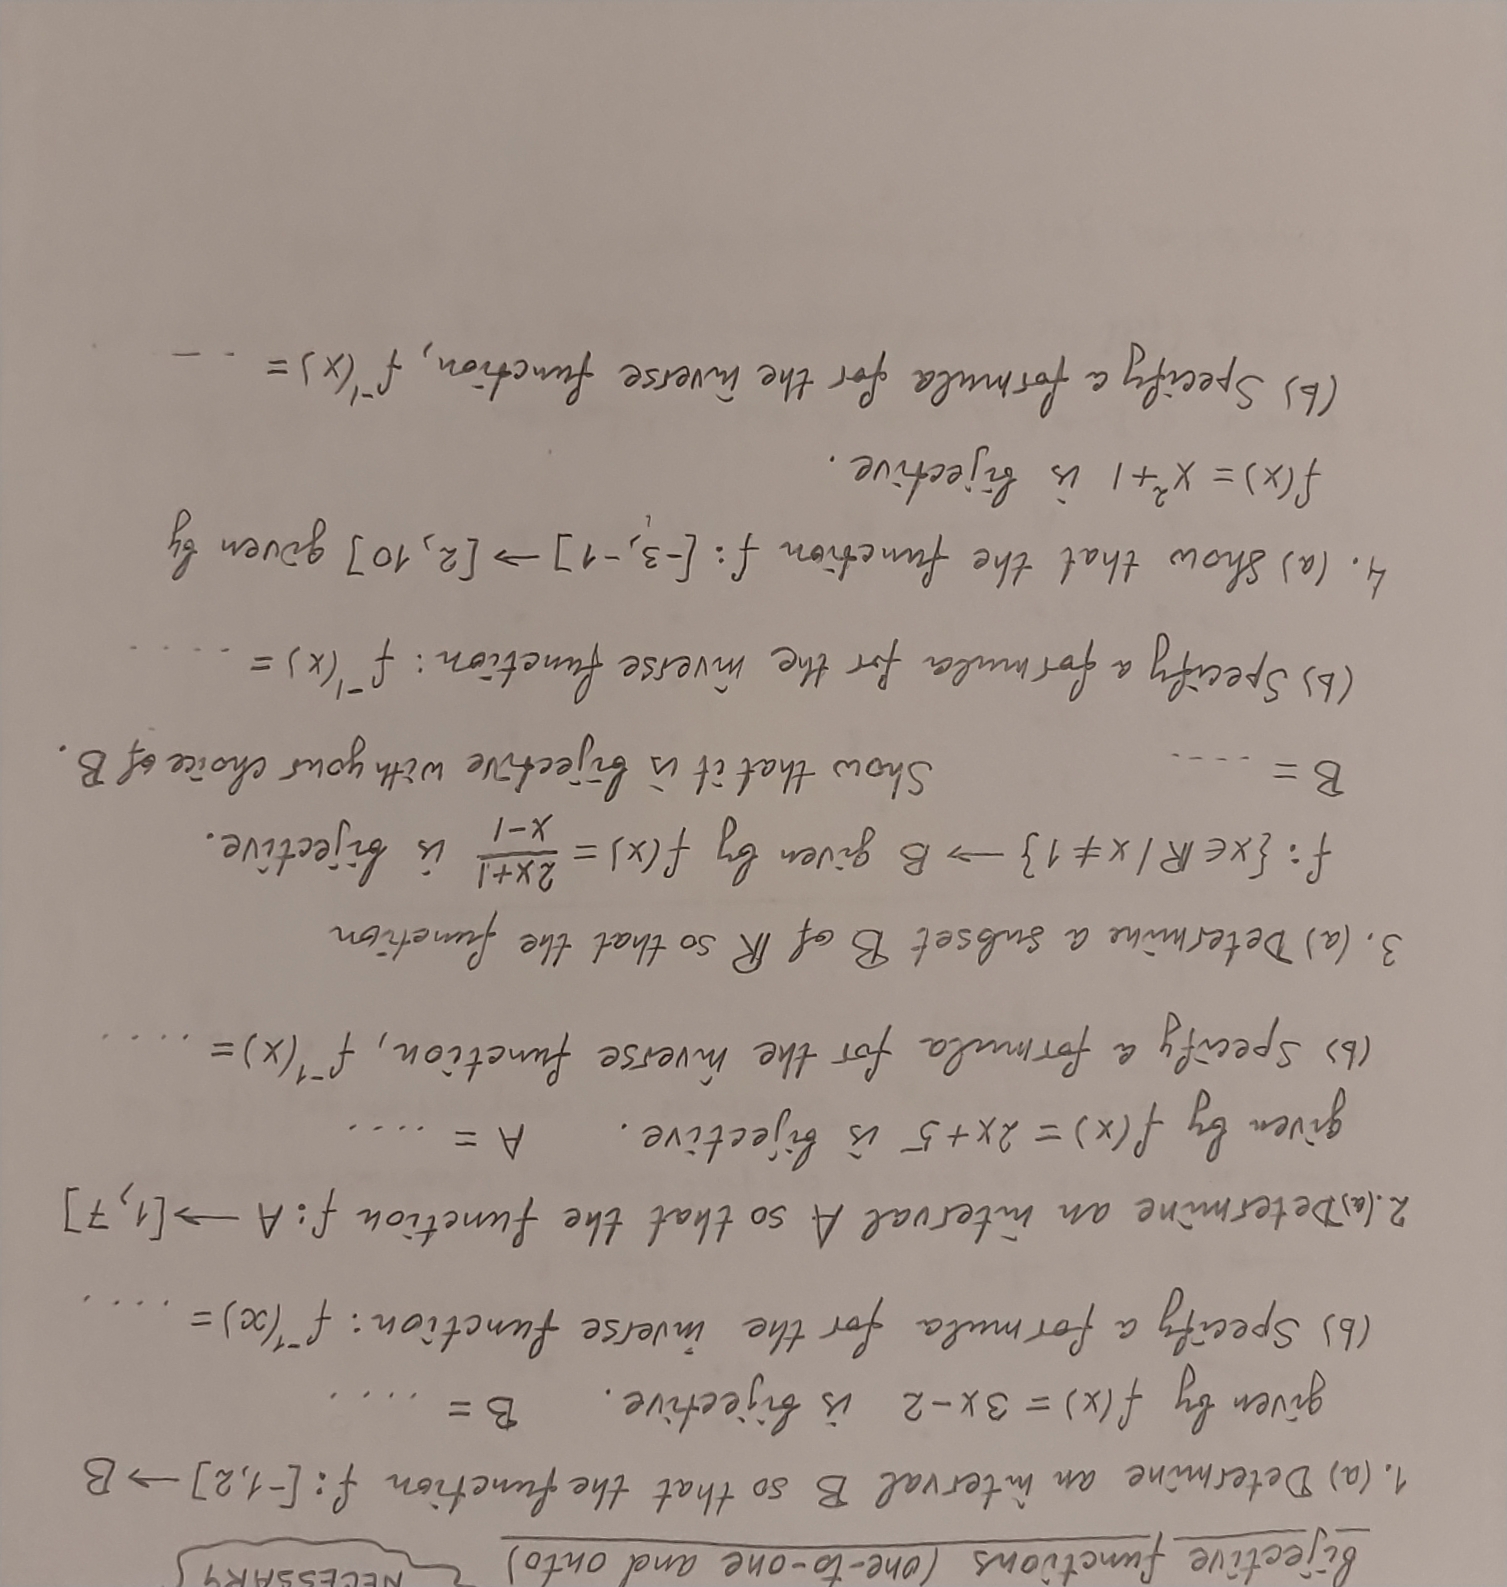 Bijective functions (one-to-one and onto) NECESSARY
1. (a) Determine an interval B so that the function f: [-1,2] → B
given by f(x) = 3x-2 is bijective. B = ....
(b) Specify a formula for the inverse function: f⁻¹(x) = ....
2. (a) Determine an interval A so that the function f: A → [1,7]
given by f(x) = 2x+5 is bijective. A = ....
(b) Specify a formula for the inverse function, f⁻¹(x) = ....
3. (a) Determine a subset B of ℝ so that the function
f: {x∈ℝ/x≠1} → B given by f(x) = (2x+1)/(x-1) is bijective.
B = .... Show that it is bijective with your choice of B.
(b) Specify a formula for the inverse function: f⁻¹(x) = ....
4. (a) Show that the function f: [-3,-1] → [2,10] given by
f(x) = x²+1 is bijective.
(b) Specify a formula for the inverse function, f⁻¹(x) = ...